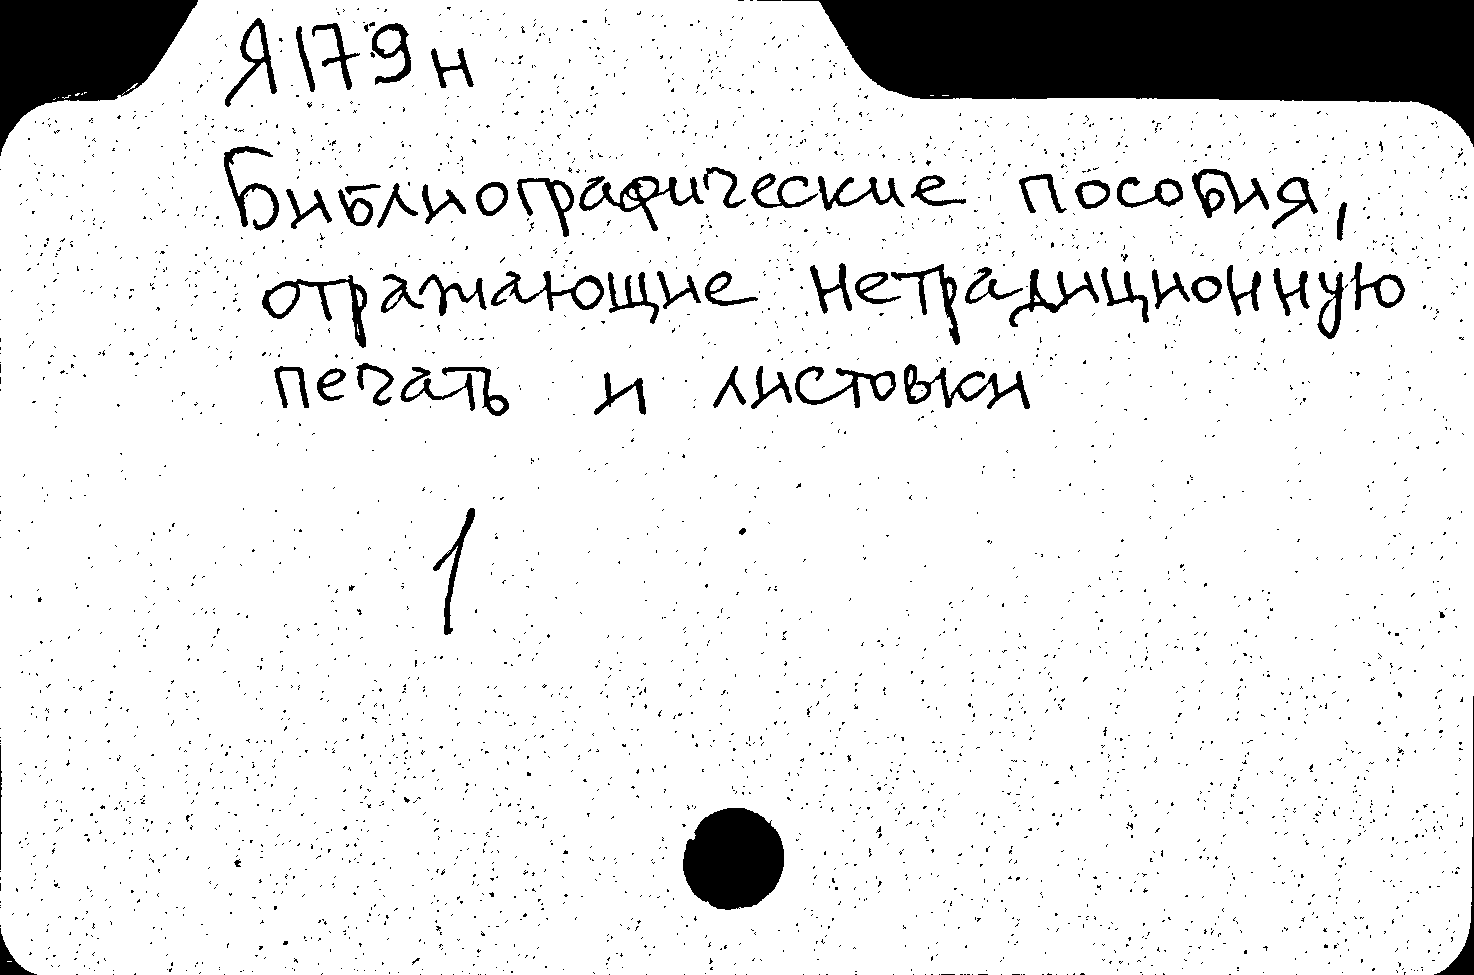 Я179н
Библиографические пособия,
отражающие нетрадиционную
печать и листовки
1